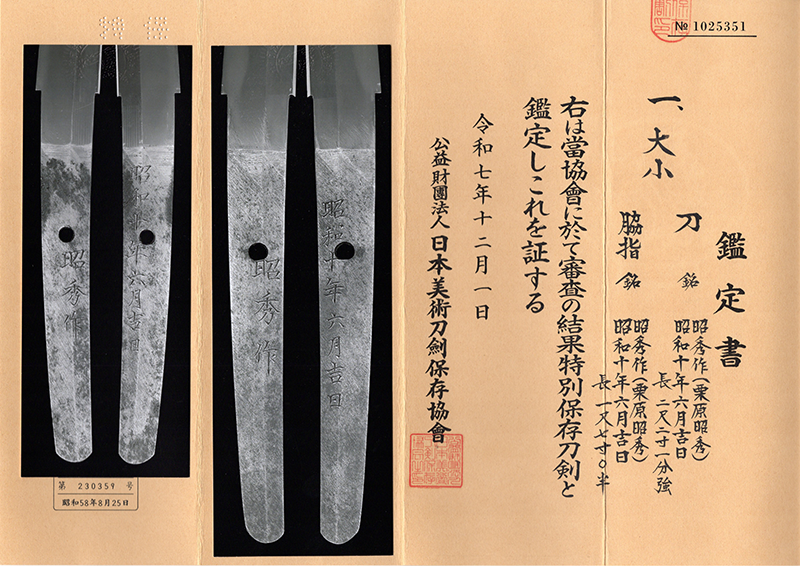 № 1025351
鑑定書
一、大小
刀 銘 昭秀作(栗原昭秀)
昭和十年六月吉日
長 二尺二寸一分強
脇指 銘 昭秀作(栗原昭秀)
昭和十年六月吉日
長一尺七寸〇半
右は當協會に於て審査の結果特別保存刀剣と
鑑定しこれを証する
令和七年十二月一日
公益財團法人 日本美術刀劍保存協會
昭和十年六月吉日
昭秀作
昭和十年六月吉日
昭秀作
第 230359 号
昭和58年8月25日